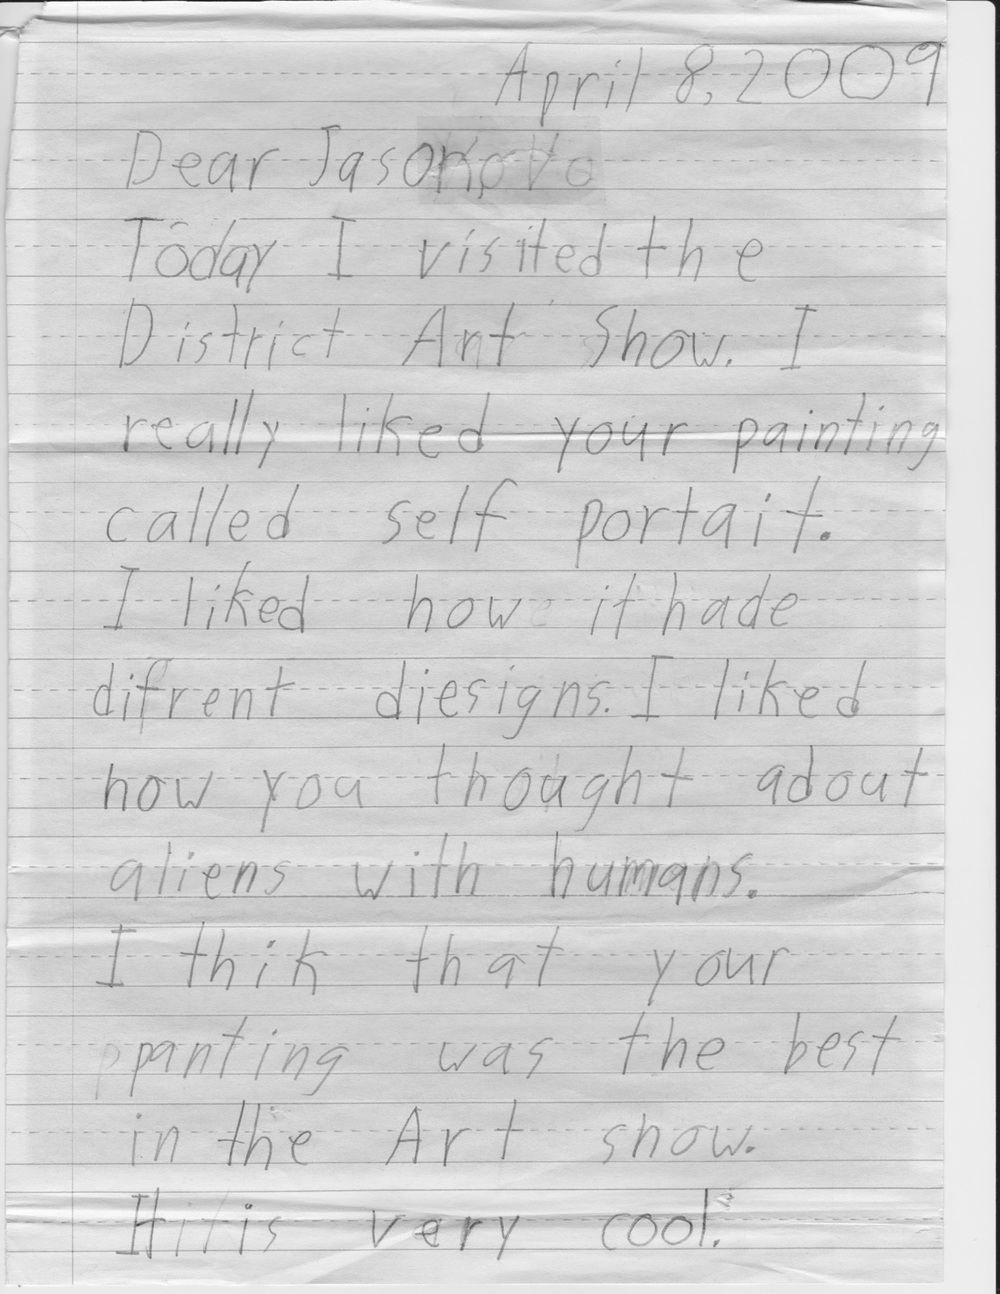 April 8, 2009
Dear Jason
Today I visited the
District Art Show. I
really liked your painting
called self portait.
I liked how it hade
difrent diesigns. I liked
how you thought adout
aliens with humans.
I thik that your
panting was the best
in the Art show.
It is very cool.